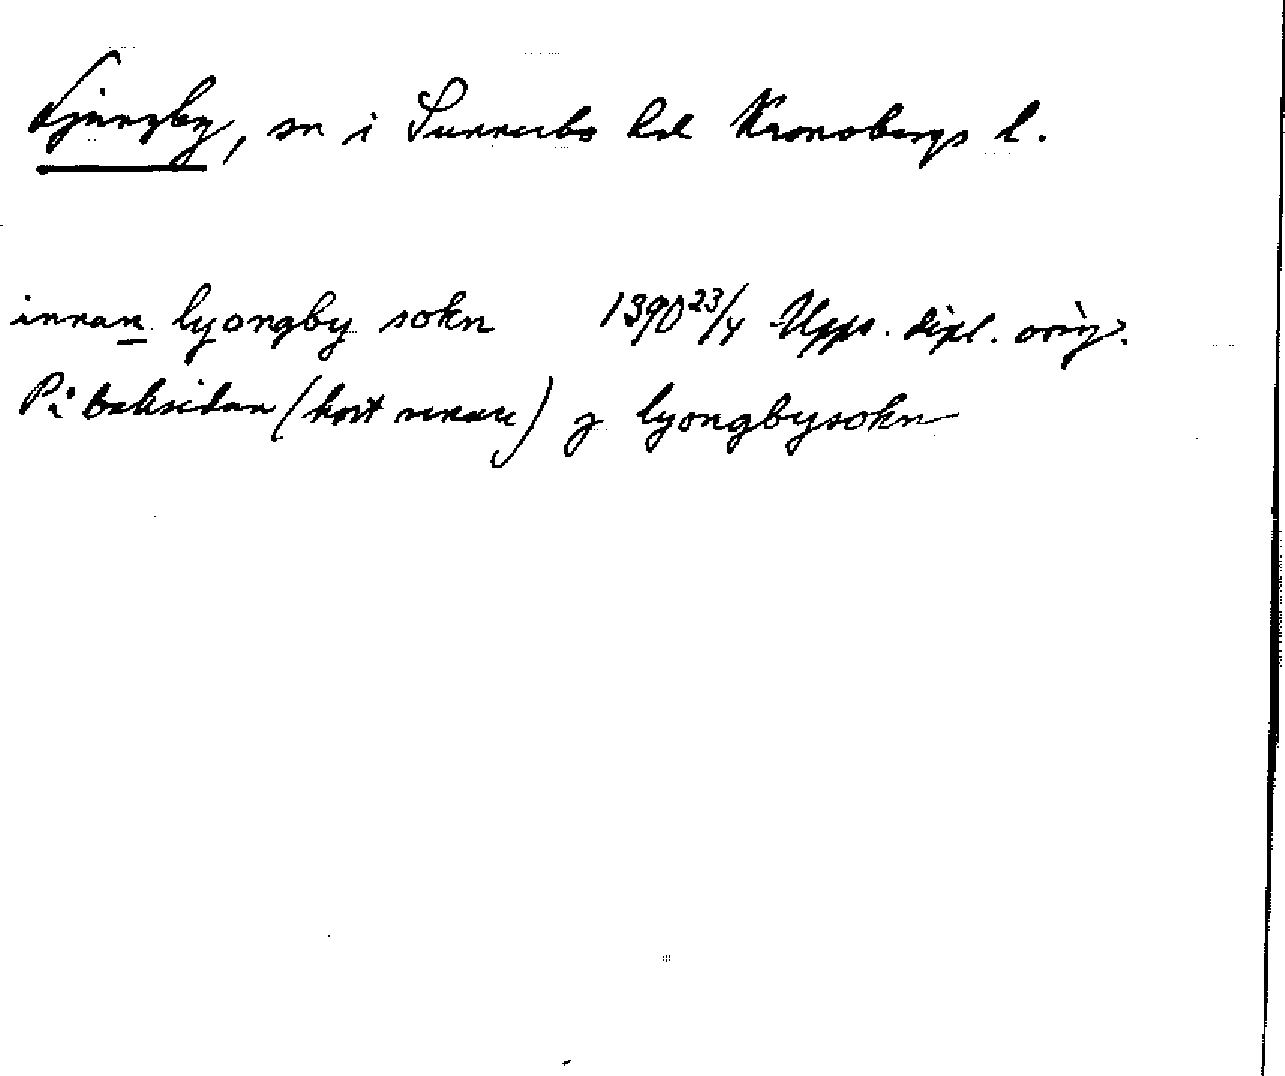 Ljungby, sn i Sunnerbo hd Kronobergs l.
innan lyongby sokn 1390 23/4 Upps. dipl. orig.
På baksidan (kort senare) j lyongbysokn